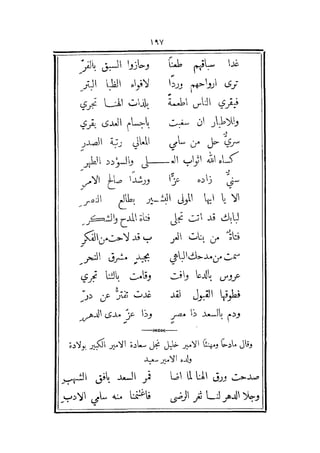 ١٩٧
غدا سباقهم طعنًا وحازوا السبق بالفرّ
ترى ارواحهم وردًا لافواه الظبا البتر
فيقري الناس اطعمةً بلذات الهنا تجري
وللاطيار ان سغبت باجسام العدى يقري
سريٌّ حل من سامي المعالي رتبة الصدر
كساه الله اثواب العلى والسؤدد الطهر
سنيٌّ زاده عزًّا ورشدًا صالح الامر
الا يا ايها المولى البشير بطالع النصر
لبابك قد اتت تجلى فتاة المدح والشكر
فتاةٌ من بنات العرب قد لاحت من الفكر
سمت من مدحك الباهي بجيدٍ مشرق النحر
عروس بالدعا وافت وقامت بالثنا تجري
فطوقها القبول لقد غدت تفترُّ عن درّ
ودم بالسعد ذا مصرٍ وذا عزٍّ مدى الدهر
وقال مادحًا ومهنئًا الامير خليل نجل سعادة الامير الكبير بولادة
ولده الامير سعيد
صدحت ورق الهنا لما اضا قمر السعد بافق الشهب
وجلا الدهر لنا ثغر الرضى فاغتنمنا منه سامي الادب